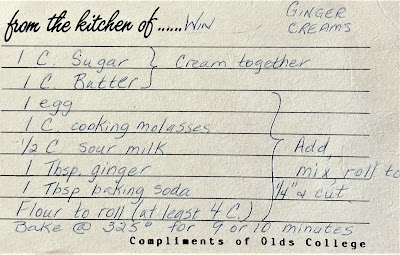 from the kitchen of ......WIN
GINGER CREAMS
1 C. Sugar } Cream together
1 C. Butter
1 egg
1 C. cooking molasses
1/2 C sour milk
1 Tbsp. ginger
1 Tbsp baking soda
Flour to roll (at least 4 C.)
Add,
mix, roll to
1/4" & cut
Bake @ 325° for 9 or 10 minutes
Compliments of Olds College